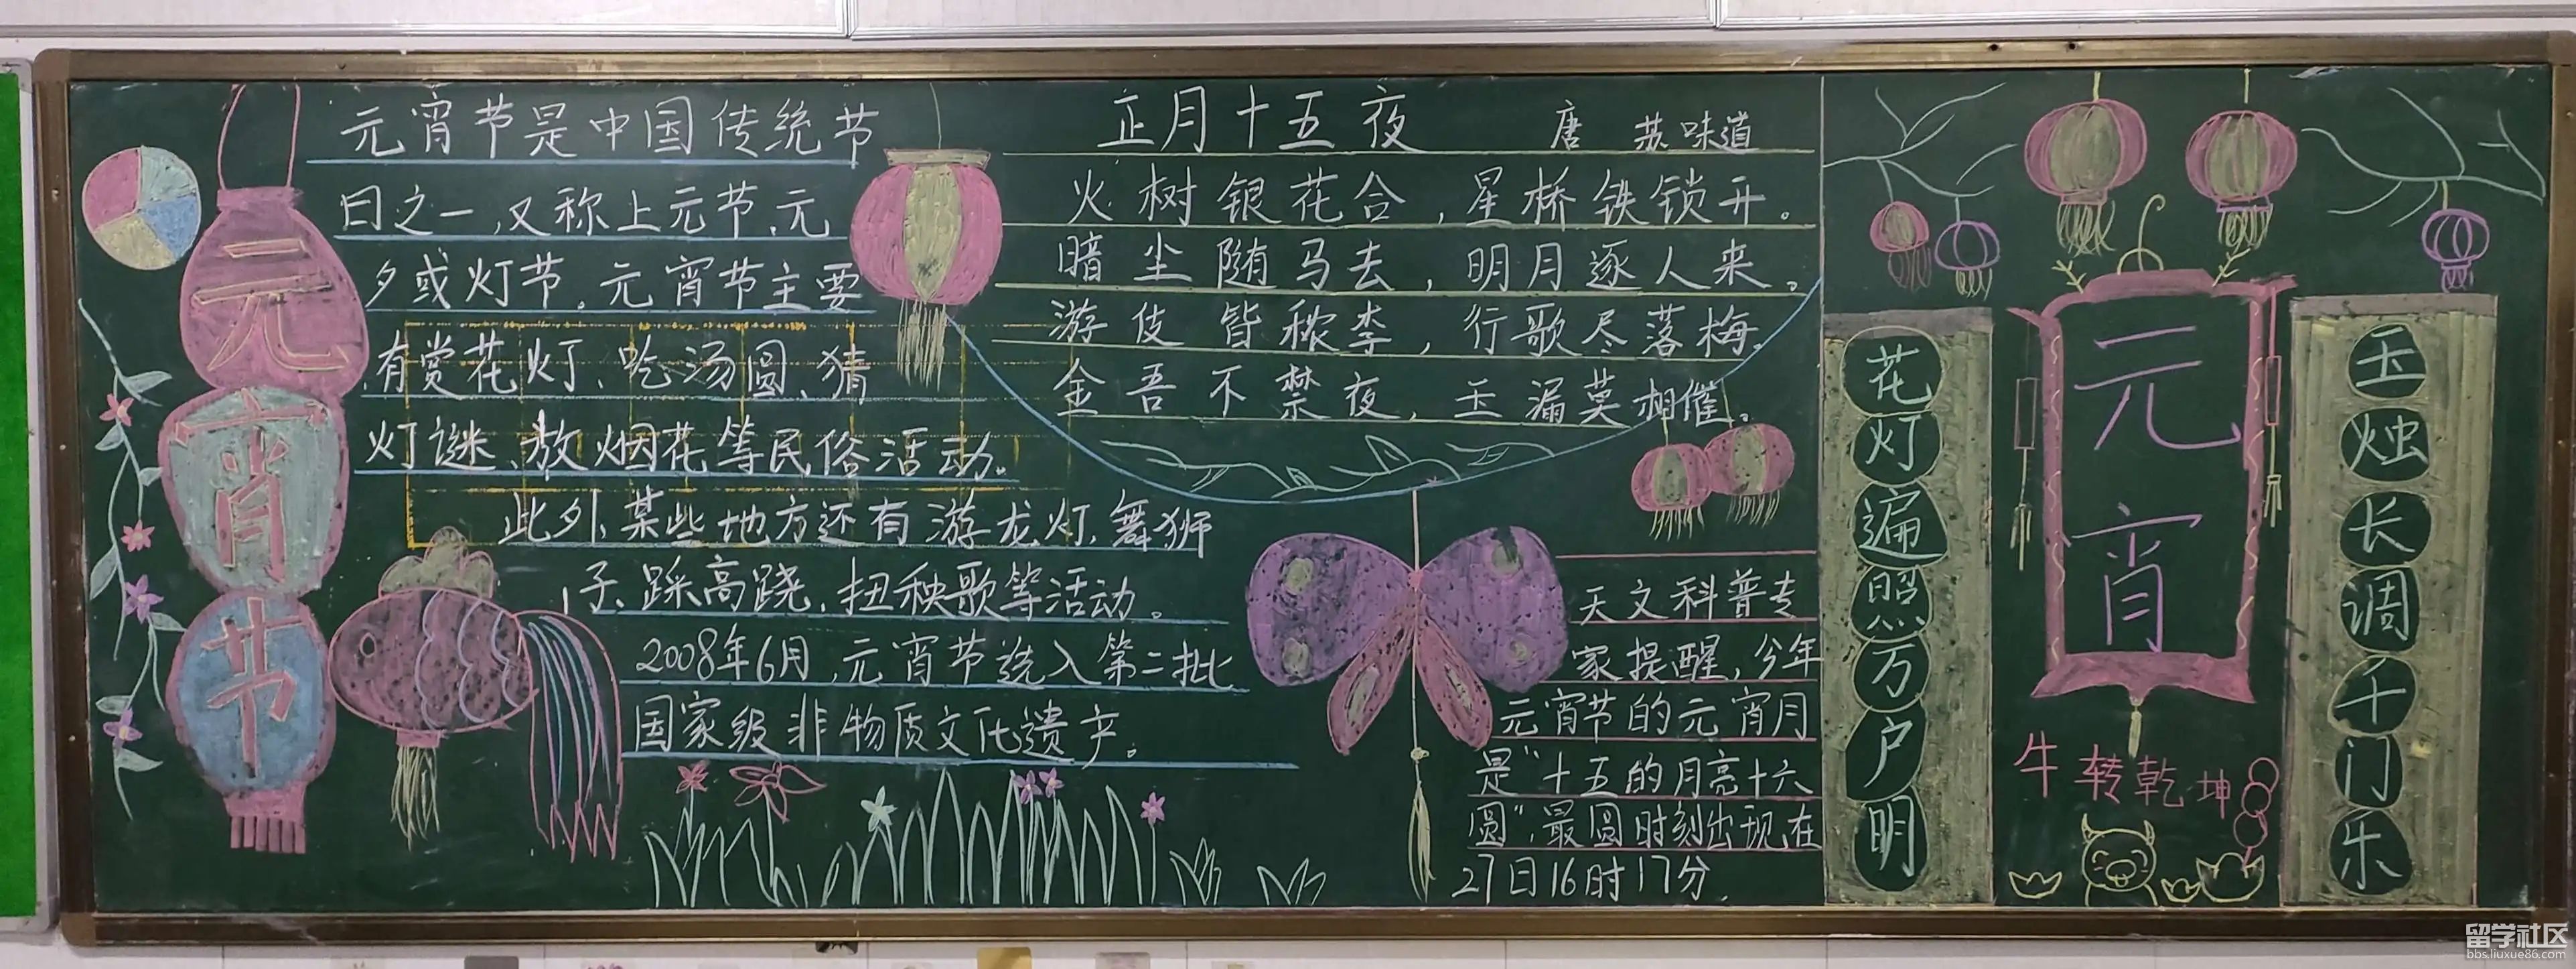 元宵节
元宵节是中国传统节
日之一,又称上元节、元
夕或灯节。元宵节主要
有赏花灯、吃汤圆、猜
灯谜、放烟花等民俗活动。
此外,某些地方还有游龙灯、舞狮
子、踩高跷、扭秧歌等活动。
2008年6月,元宵节选入第二批
国家级非物质文化遗产。
正月十五夜 唐 苏味道
火树银花合,星桥铁锁开。
暗尘随马去,明月逐人来。
游伎皆秾李,行歌尽落梅。
金吾不禁夜,玉漏莫相催。
天文科普专
家提醒,今年
元宵节的元宵月
是“十五的月亮十六
圆”,最圆时刻出现在
27日16时17分.
花灯遍照万户明
元宵
牛转乾坤
玉烛长调千门乐
留学社区
bbs.liuxue86.com